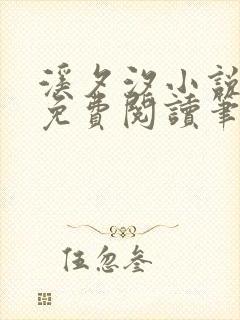 溪夕汐小說
免費閱讀筆
伍忽叁